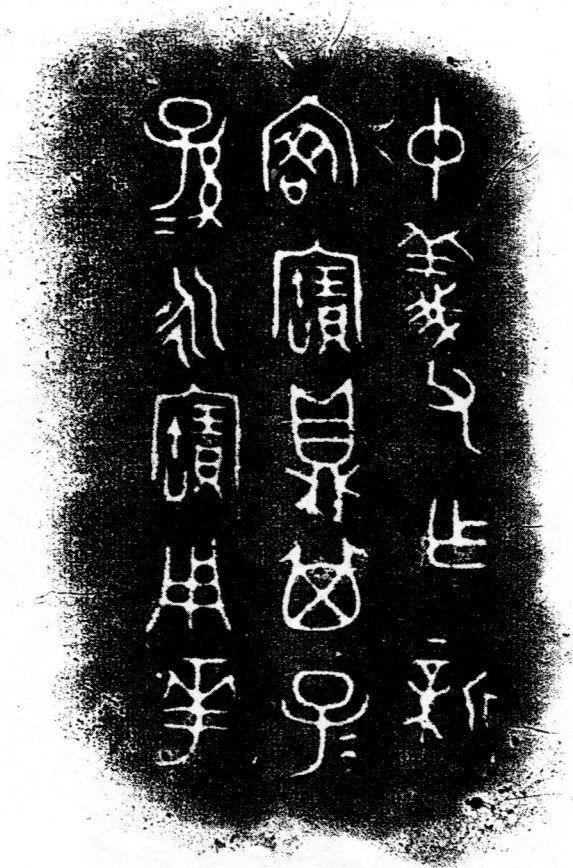 中義父乍新
客寶鼎其子=
孫=永寶用華